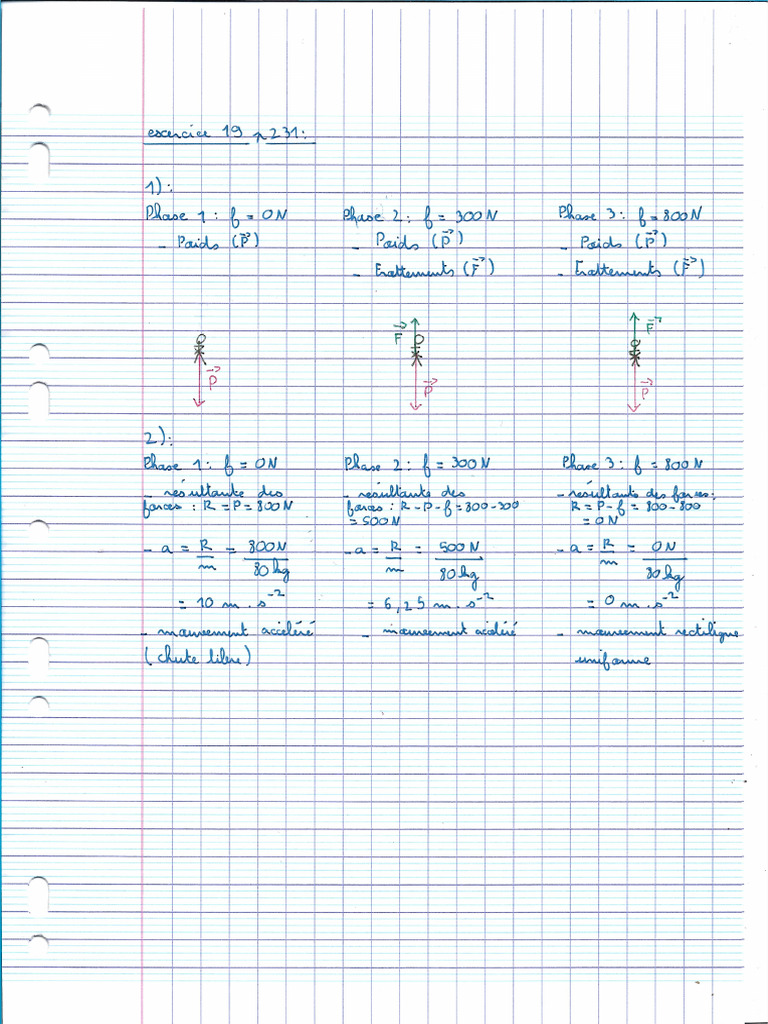 exercice 19 p 231:
1):
Phase 1: f = 0N
- Poids (P)
Phase 2: f = 300N
- Poids (P)
- Frottements (F)
Phase 3: f = 800N
- Poids (P)
- Frottements (F)
P
F
P
F
P
2):
Phase 1: f = 0N
- résultante des
forces : R = P = 800N
- a = R/m = 800N/80kg
= 10 m.s⁻²
- mouvement accéléré
(chute libre)
Phase 2: f = 300N
- résultante des
forces : R - P - f = 800 - 300
= 500N
- a = R/m = 500N/80kg
= 6,25 m.s⁻²
- mouvement accéléré
Phase 3: f = 800N
- résultante des forces:
R = P - f = 800 - 800
= 0N
- a = R/m = 0N/80kg
= 0 m.s⁻²
- mouvement rectiligne
uniforme